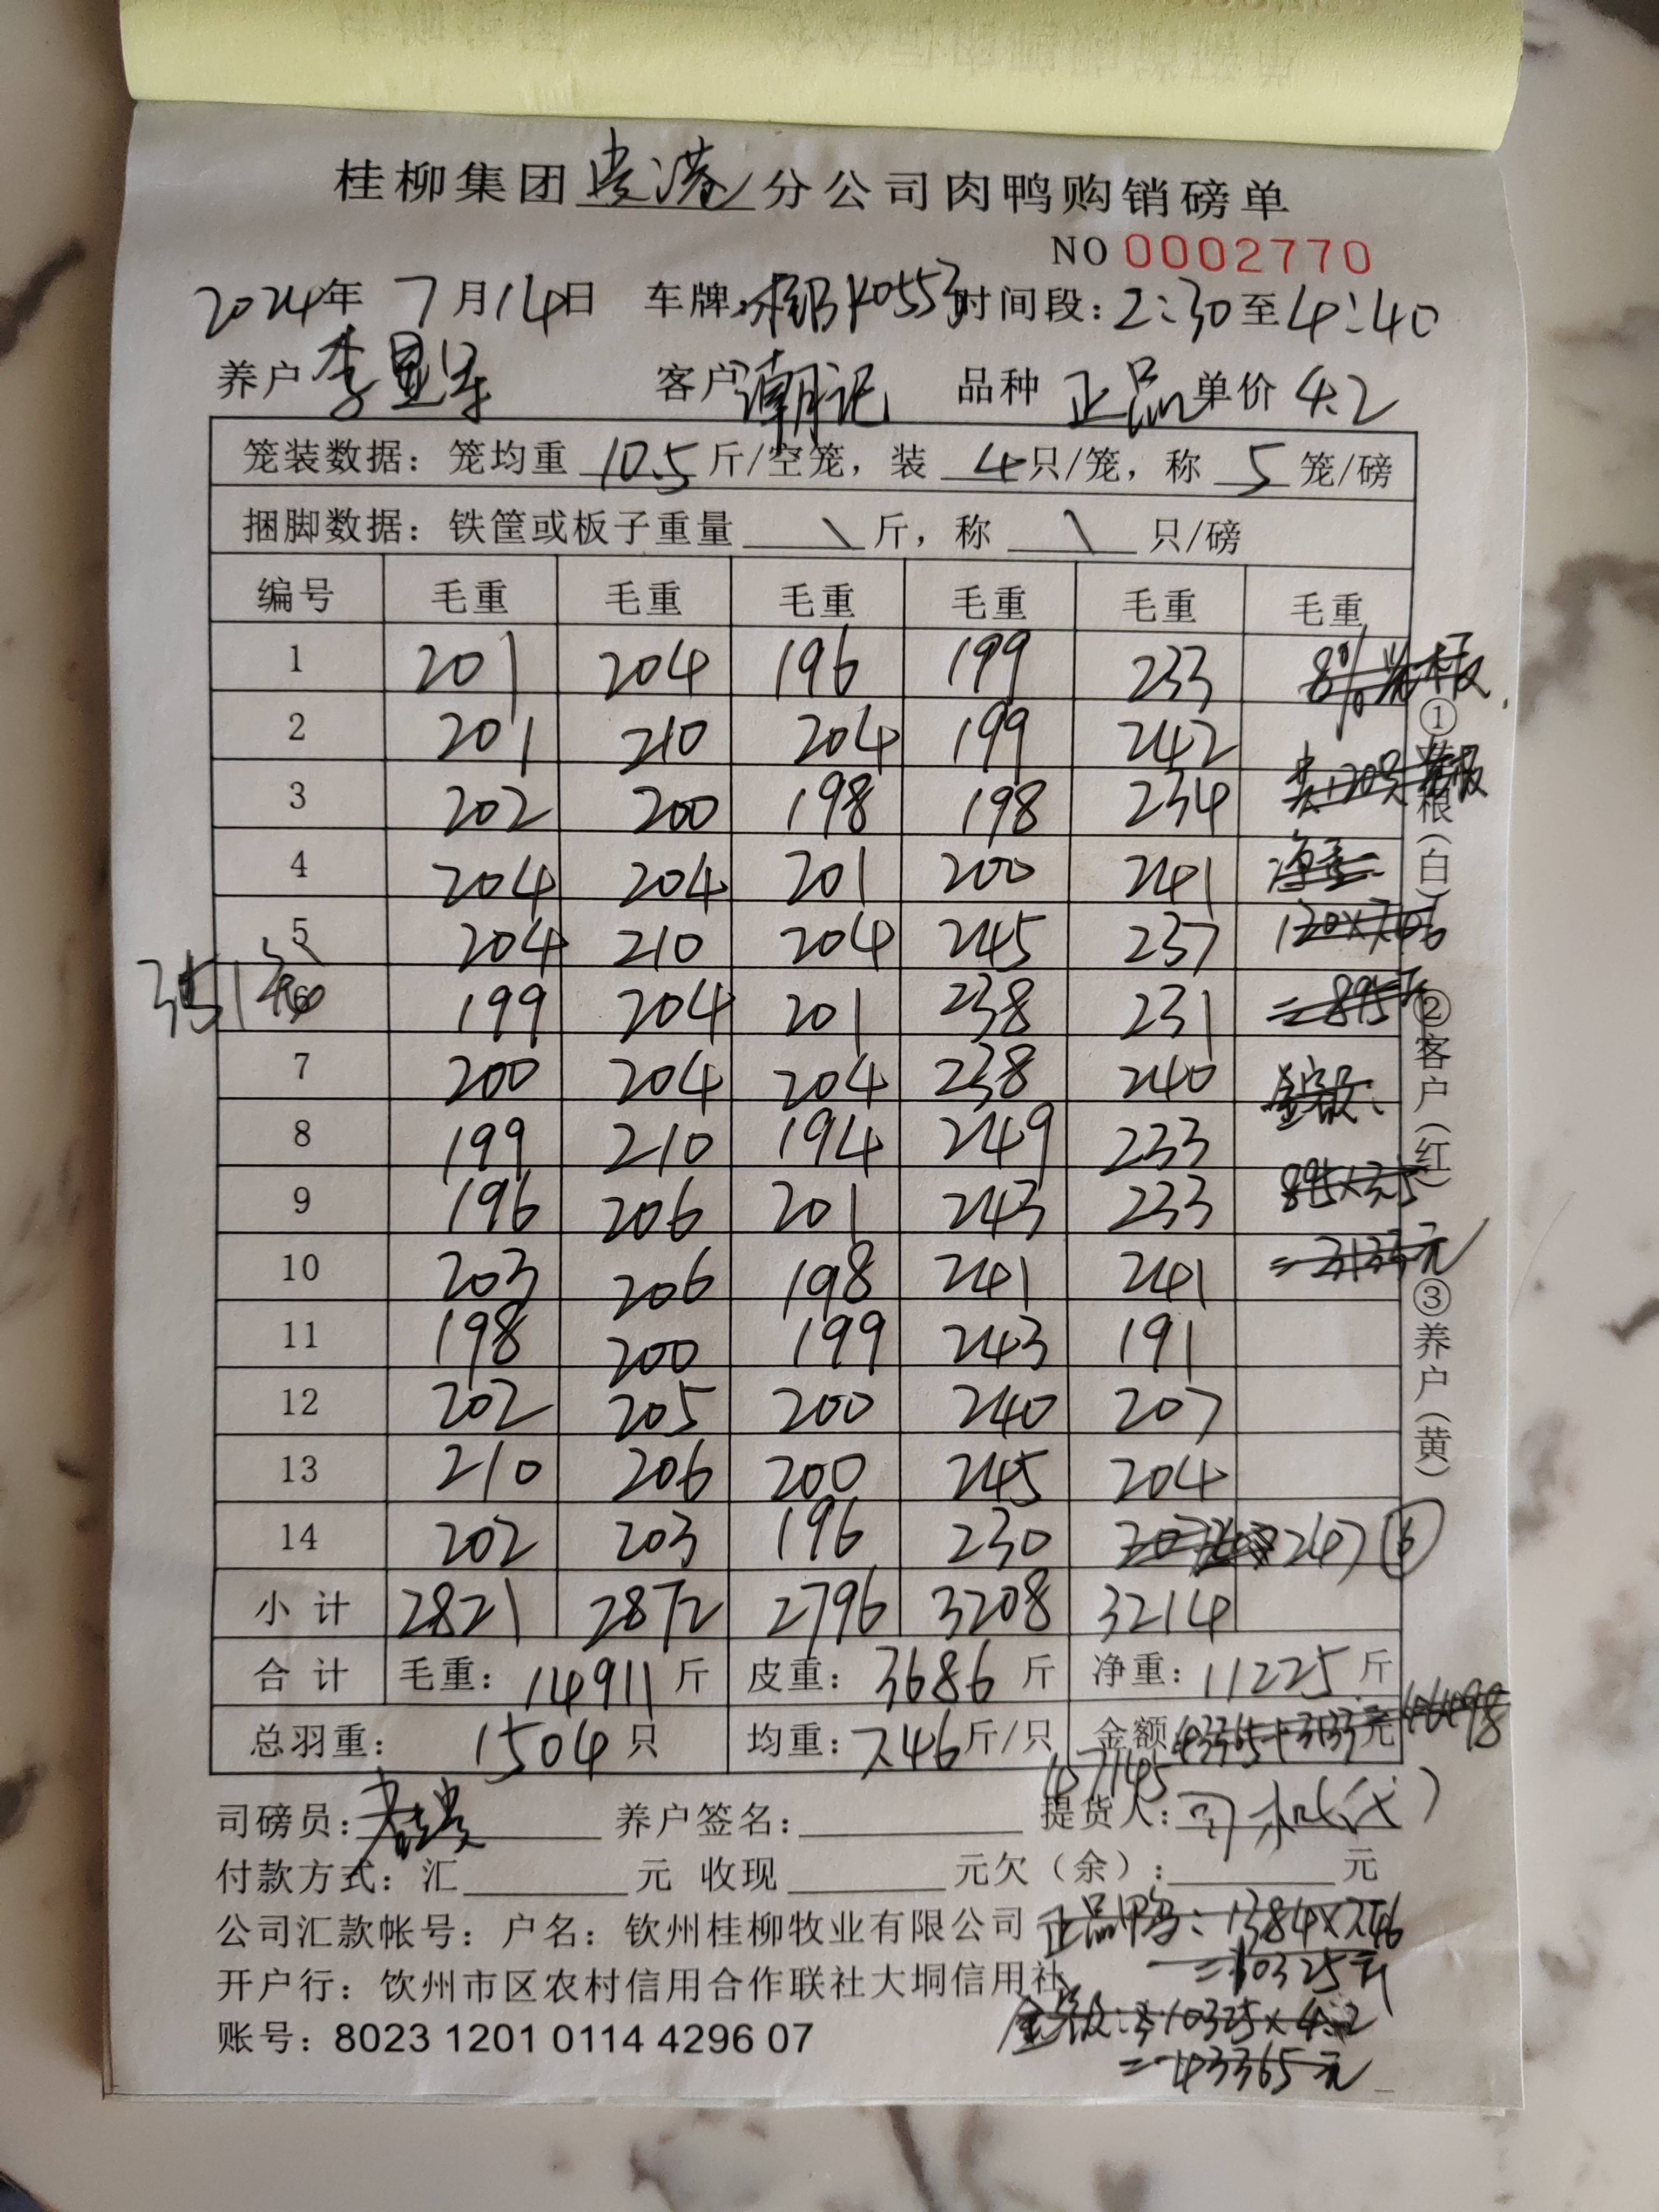 桂柳集团贵港分公司肉鸭购销磅单
NO 0002770
2024年 7月14日 车牌:桂BK0553 时间段:2:30至4:40
养户 李显 客户 潮记 品种 正品 单价 4.2
笼装数据:笼均重 10.5 斤/空笼,装 4 只/笼,称 5 笼/磅
捆脚数据:铁筐或板子重量 \ 斤,称 \ 只/磅
编号 毛重 毛重 毛重 毛重 毛重 毛重
1 201 204 196 199 233 8%
2 201 210 204 199 242
3 202 200 198 198 234 共120只
4 204 204 201 200 241 净重:
5 204 210 204 245 237 120×7.46
6 199 204 201 238 231 =895斤
7 200 204 204 238 240 金额:
8 199 210 194 249 233
9 196 206 201 243 233 895×3.5
10 203 206 198 241 241 =3133元
11 198 200 199 243 191
12 202 205 200 240 207
13 210 206 200 245 204
14 202 203 196 230 247 ⑥
小计 2821 2872 2796 3208 3214
合计 毛重:14911斤 皮重:3686斤 净重:11225斤
总羽重:1504只 均重:7.46斤/只 金额 43365+3133元
47145
司磅员: 养户签名: 提货人:司机(代)
付款方式:汇 元 收现 元欠(余): 元
公司汇款帐号:户名:钦州桂柳牧业有限公司
正品鸭:1384×7.46
=10325斤
开户行:饮州市区农村信用合作联社大垌信用社
金额:10325×4.2
=43365元
账号:8023 1201 0114 4296 07
①存根(白) ②客户(红) ③养户(黄)
351